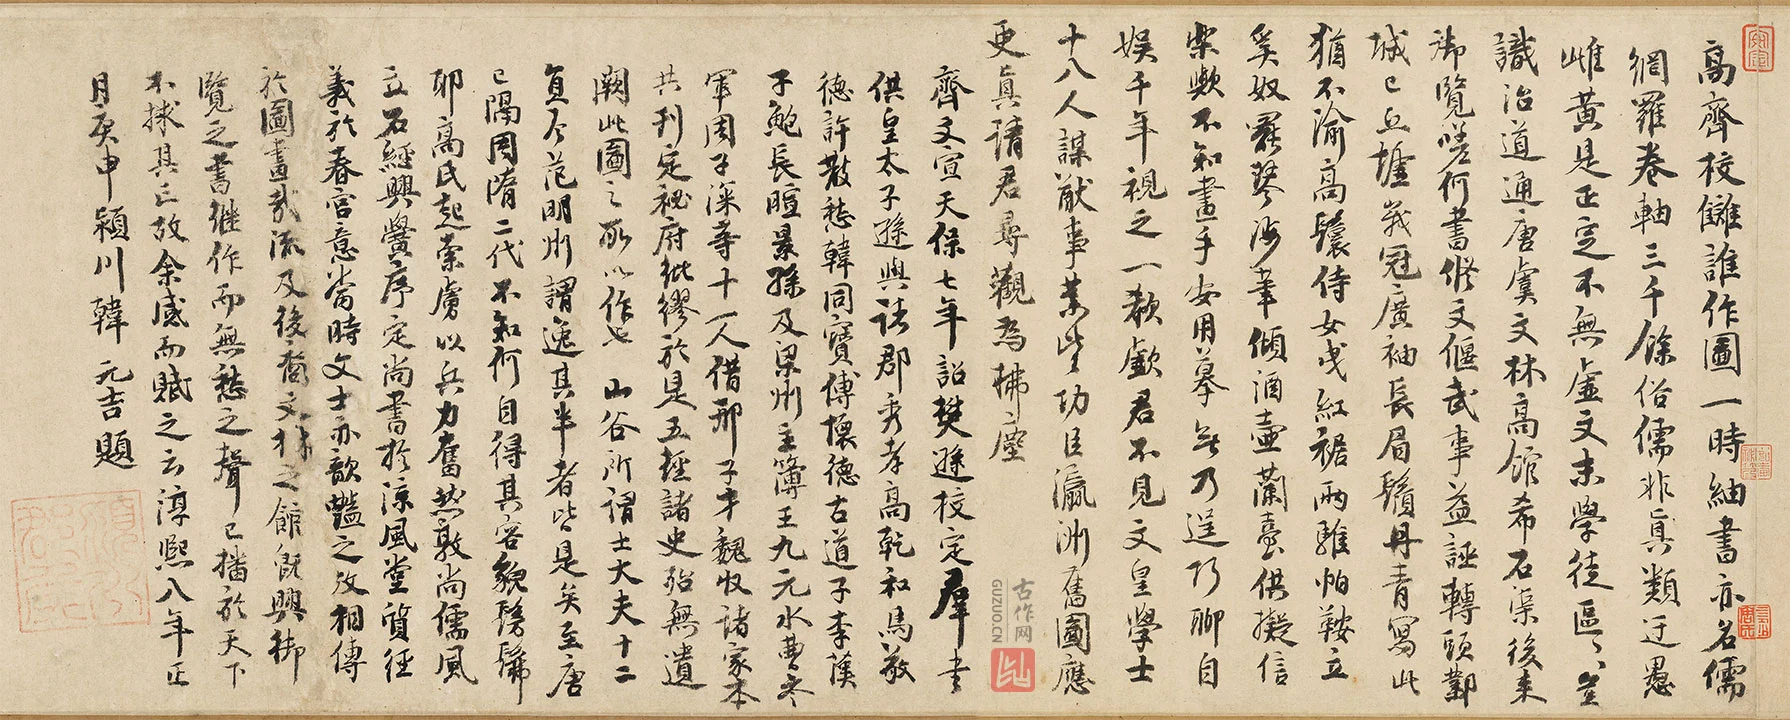 高齊校讎誰作圖一時紬書亦名儒
網羅卷軸三千餘俗儒非真類迂愚
雌黃是正定不無虛文末學徒區〻豈
識治道通唐虞文林高館希石渠後來
御覽嗟何書修文偃武事益誣轉頭鄴
城已丘墟峩冠廣袖長眉鬚丹青寫此
猶不渝高鬟侍女曳紅裾兩騅帕鞍立
奚奴罷琴涉筆傾酒壺蘭臺供擬信
樂歟不知畫手安用摹無乃逞巧聊自
娛千年視之一欷歔君不見文皇學士
十八人謀猷事業皆功臣瀛洲舊圖應
更真請君尋觀為拂塵
齊文宣天保七年詔樊遜校定群書
供皇太子遜與諸郡秀孝高乾和馬敬
德許散愁韓同寶傅懷德古道子李漢
子鮑長暄景孫及梁州主簿王九元水曹參
軍周子深等十一人借邢子才魏收諸家本
共刊定秘府紕繆於是五經諸史殆無遺
闕此圖之所以作也山谷所謂士大夫十二
員今范明州謂逸其半者皆是矣至唐
已隔周隋二代不知何自得其容貌髣髴
耶高氏起索虜以兵力奮然敦尚儒風
立石經興黌序定尚書於涼風堂質經
義於春宮意當時文士亦歆豔之故相傳
於圖畫哉流及後裔文林之館既興御
覽之書繼作而無愁之聲已播於天下
不捄其亡故余感而賦之云淳熙八年正
月庚申潁川韓元吉題
古作网
GUZUO.CN